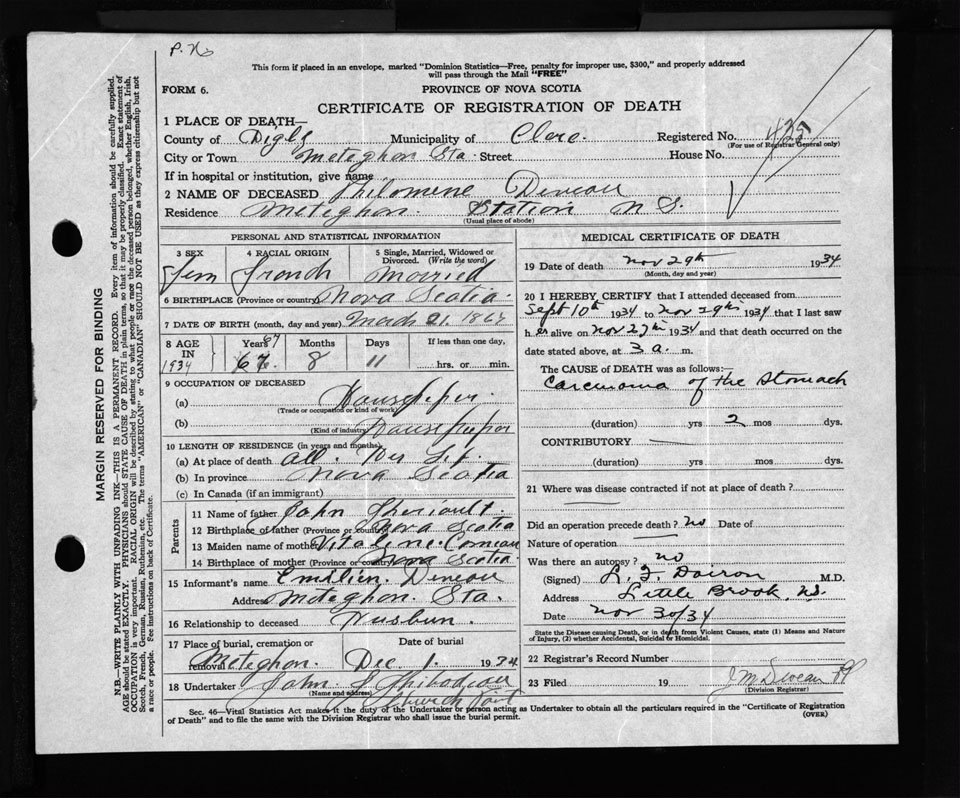 P. Ns
This form if placed in an envelope, marked "Dominion Statistics—Free, penalty for improper use, $300," and properly addressed
will pass through the Mail "FREE"
FORM 6.
PROVINCE OF NOVA SCOTIA
CERTIFICATE OF REGISTRATION OF DEATH
1 PLACE OF DEATH—
County of Digby Municipality of Clare. Registered No. 425
(For use of Registrar General only)
City or Town Meteghon Sta. Street House No.
If in hospital or institution, give name
2 NAME OF DECEASED Philomene Deveau
Residence Meteghon. Station N S.
(Usual place of abode)
PERSONAL AND STATISTICAL INFORMATION
3 SEX 4 RACIAL ORIGIN 5 Single, Married, Widowed or
Divorced. (Write the word)
Fem French Married
6 BIRTHPLACE (Province or country) Nova Scotia.
7 DATE OF BIRTH (month, day and year) March 21. 1867
8 AGE Years Months Days If less than one day,
IN 67
1934 67. 8 11 hrs. or min.
9 OCCUPATION OF DECEASED
(a) Housekeeper.
(Trade or occupation or kind of work)
(b) Housekeeper
(Kind of industry)
10 LENGTH OF RESIDENCE (in years and months)
(a) At place of death all. Her Lif.
(b) In province Nova Scotia
(c) In Canada (if an immigrant)
Parents
11 Name of father John Theriault.
12 Birthplace of father (Province or country) Nova Scotia
13 Maiden name of mother Vitaline Comeau
14 Birthplace of mother (Province or country) Nova Scotia
15 Informant's name Emilien. Deveau
Address Meteghon. Sta.
16 Relationship to deceased Husbun.
17 Place of burial, cremation or removal Date of burial
Meteghon. Dec 1. 1934
18 Undertaker John S Thibodeau
(Name and address) Church Point
MEDICAL CERTIFICATE OF DEATH
19 Date of death Nov 29th 1934
(Month, day and year)
20 I HEREBY CERTIFY that I attended deceased from
Sept 10th 1934 to Nov 29th 1934 that I last saw
h er alive on Nov 27th 1934 and that death occurred on
date stated above, at 3 a. m.
The CAUSE OF DEATH was as follows:
Carcinoma of the Stomach
(duration) yrs 2 mos dys.
CONTRIBUTORY
(duration) yrs. mos dys.
21 Where was disease contracted if not at place of death?
Did an operation precede death? no Date of
Nature of operation
Was there an autopsy? no
(Signed) M.D.
Address Little Brook, NS.
Date Nov 30/34
State the Disease causing Death, or in death from Violent Causes, state (1) Means and Nature
of Injury, (2) whether Accidental, Suicidal or Homicidal.
22 Registrar's Record Number
23 Filed 19 J M Deveau
(Division Registrar)
Sec. 46—Vital Statistics Act makes it the duty of the Undertaker or person acting as Undertaker to obtain all the particulars required in the "Certificate of Registration
of Death" and to file the same with the Division Registrar who shall issue the burial permit. (OVER)
MARGIN RESERVED FOR BINDING
N.B.—WRITE PLAINLY WITH UNFADING INK—THIS IS A PERMANENT RECORD. Every item of information should be carefully supplied.
AGE should be stated EXACTLY. PHYSICIANS should STATE CAUSE OF DEATH in plain terms, so that it may be properly classified. Exact statement of
OCCUPATION is very important. RACIAL ORIGIN will be described by stating to what people or race the deceased person belonged, whether English, Irish,
Scotch, French, German, Russian, Ruthenian, etc. The terms "AMERICAN" or "CANADIAN" SHOULD NOT BE USED as they express citizenship but not
a race or people. See instructions on back of Certificate.